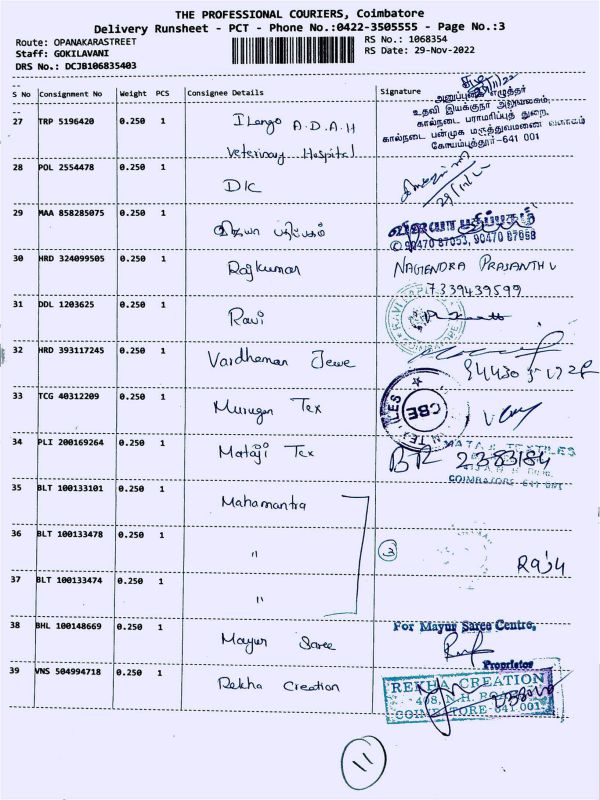 THE PROFESSIONAL COURIERS, Coimbatore
Delivery Runsheet - PCT - Phone No.:0422-3505555 - Page No.:3
Route: OPANAKARASTREET
RS No.: 1068354
Staff: GOKILAVANI
RS Date: 29-Nov-2022
DRS No.: DCJB106835403
S No Consignment No Weight PCS Consignee Details Signature
29/11/22
அனுப்புகை எழுத்தர்
உதவி இயக்குநர் அலுவலகம்,
கால்நடை பராமரிப்புத் துறை,
கால்நடை பன்முக மருத்துவமனை வளாகம்
கோயம்புத்தூர்-641 001
27 TRP 5196420 0.250 1 Ilango A.D.A.H
Veterinary Hospital
28 POL 2554478 0.250 1 DIC
29 MAA 858285075 0.250 1 விஜயா பதிப்பகம் விஜயா பதிப்பகம்
✆ 90470 87053, 90470 87058
30 HRD 324099505 0.250 1 Rajkumar NAGENDRA PRASANTH V
7339439599
31 DDL 1203625 0.250 1 Ravi
32 HRD 393117245 0.250 1 Vardhaman Jewe
33 TCG 40312209 0.250 1 Murugan Tex CBE
34 PLI 200169264 0.250 1 Mataji Tex MATAJI TEXTILES
2383184
COIMBATORE-641 001
35 BLT 100133101 0.250 1 Mahamantra
36 BLT 100133478 0.250 1 " 3
37 BLT 100133474 0.250 1 "
38 BHL 100148669 0.250 1 Mayur Saree For Mayur Saree Centre,
Proprietor
39 VNS 504994718 0.250 1 Rekha Creation REKHA CREATION
COIMBATORE-641 001
11